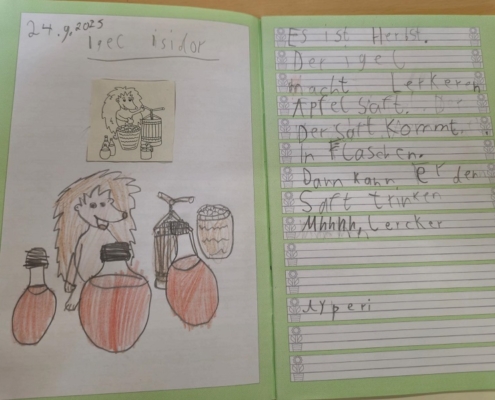 24.9.2025
igel isidor
Es ist Herbst.
Der igel
macht Lerkeren
Apfel Saft.
Der Saft kommt.
In Flaschen.
Dann kann er den
Saft trinken
Mhhhh, Lercker